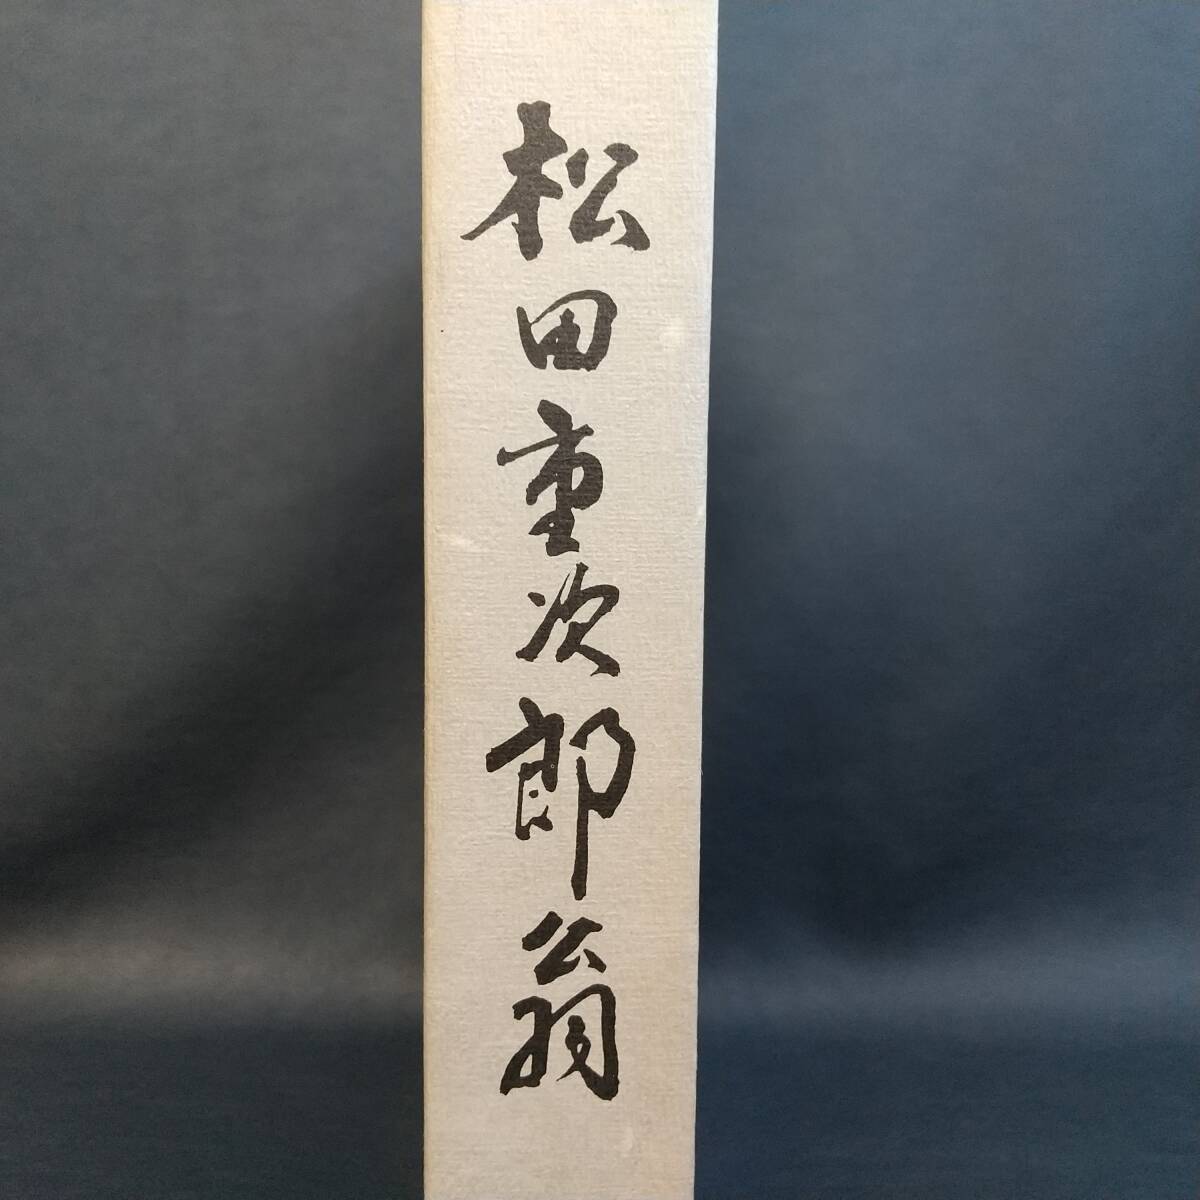 松田重次郎翁